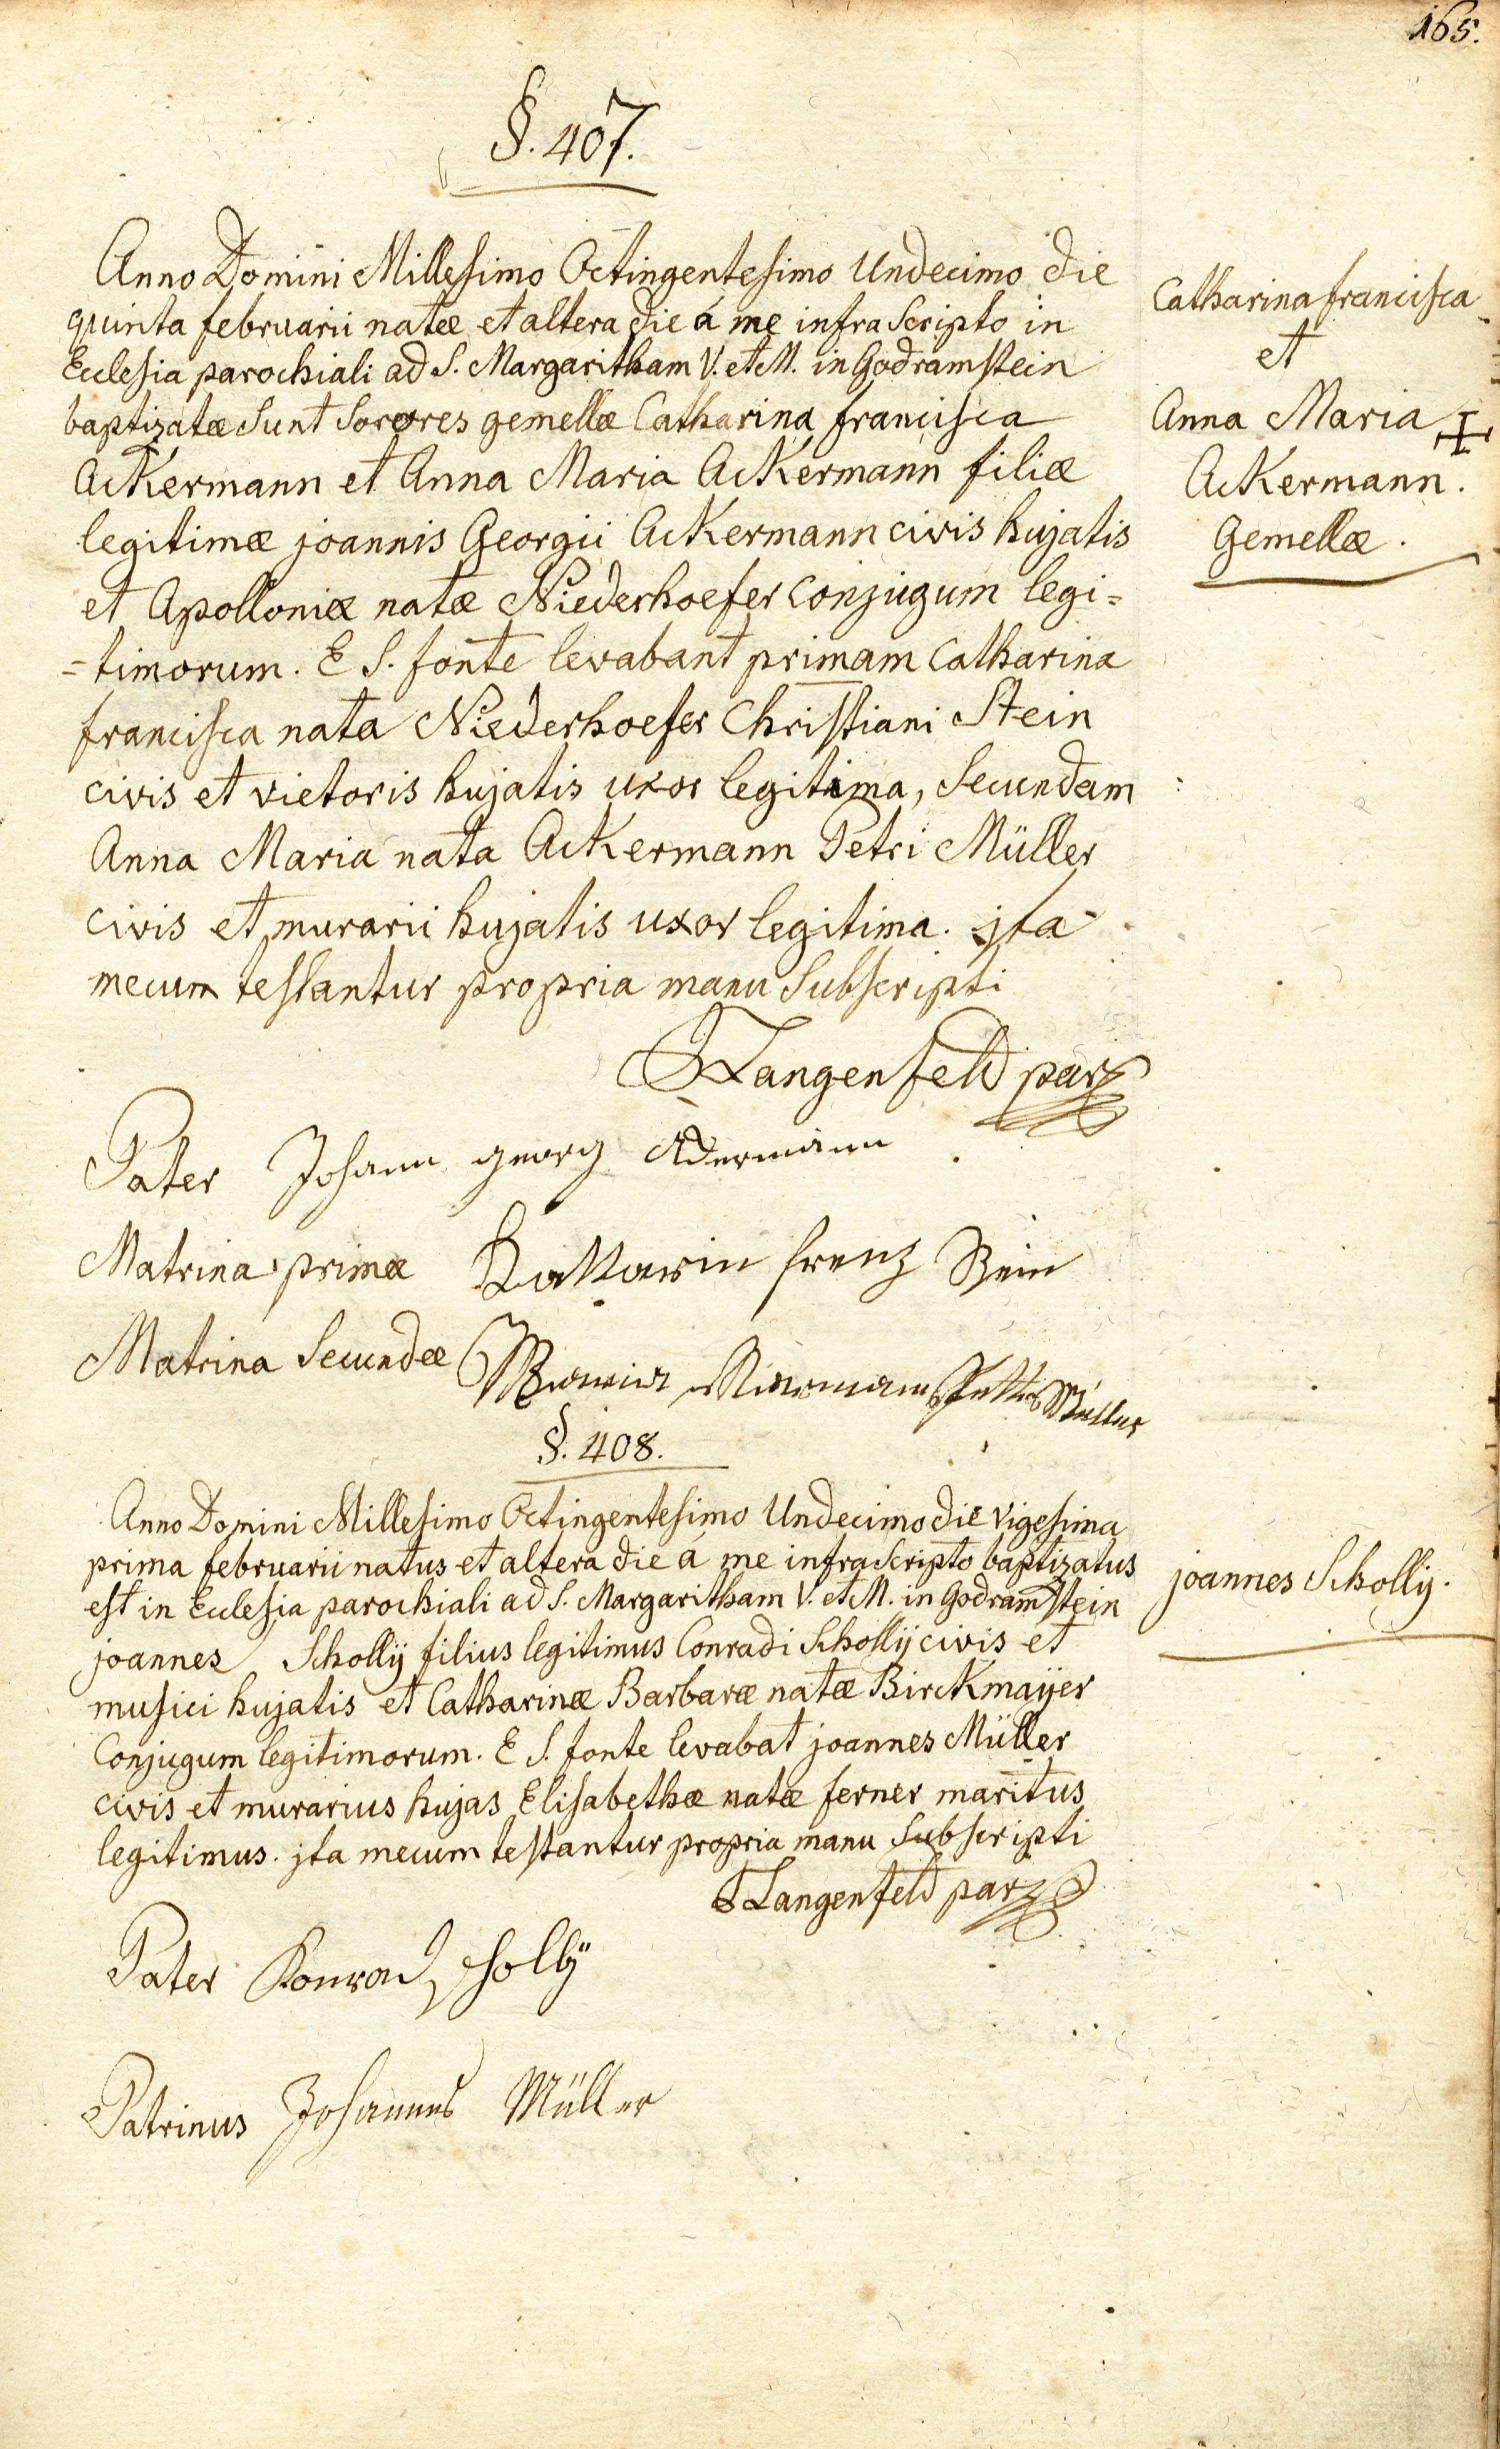 165.
§. 407.
Anno Domini Millesimo Octingentesimo Undecimo die
quinta februarii natæ et altera die á me infra Scripto in
Ecclesia parochiali ad S. Margaritham V. et M. in Godramstein
baptizatæ Sunt Sorores gemellæ Catharina francisca
Ackermann et Anna Maria Ackermann filiæ
legitimæ joannis Georgii Ackermann civis hujatis
et Apolloniæ natæ Niederhoefer conjugum legi=
=timorum. E S. fonte levabant primam Catharina
francisca nata Niederhoefer Christiani Stein
civis et vietoris hujatis uxor legitima, Secundam
Anna Maria nata Ackermann Petri Müller
civis et murarii hujatis uxor legitima. jta
mecum testantur propria manu Subscripti
Catharina francisca
et
Anna Maria ✝
Ackermann.
Gemellæ.
Langenfeld par
Pater Johann georg Ackermann
Matrina primæ Kattarin frenz Stein
Matrina Secundæ Müller
§. 408.
Anno Domini Millesimo Octingentesimo Undecimo die vigesima
prima februarii natus et altera die á me infra Scripto baptizatus
est in Ecclesia parochiali ad S. Margaritham V. et M. in Godramstein
joannes Schollÿ filius legitimus Conradi Schollÿ civis et
musici hujatis et Catharinæ Barbaræ natæ Birckmaÿer
Conjugum legitimorum. E S. fonte levabat joannes Müller
civis et murarius hujas Elisabethæ natæ ferner maritus
legitimus. jta mecum testantur propria manu Subscripti
joannes Schollÿ.
Langenfeld par
Pater Konrad schollÿ
Patrinus Johannes Müller